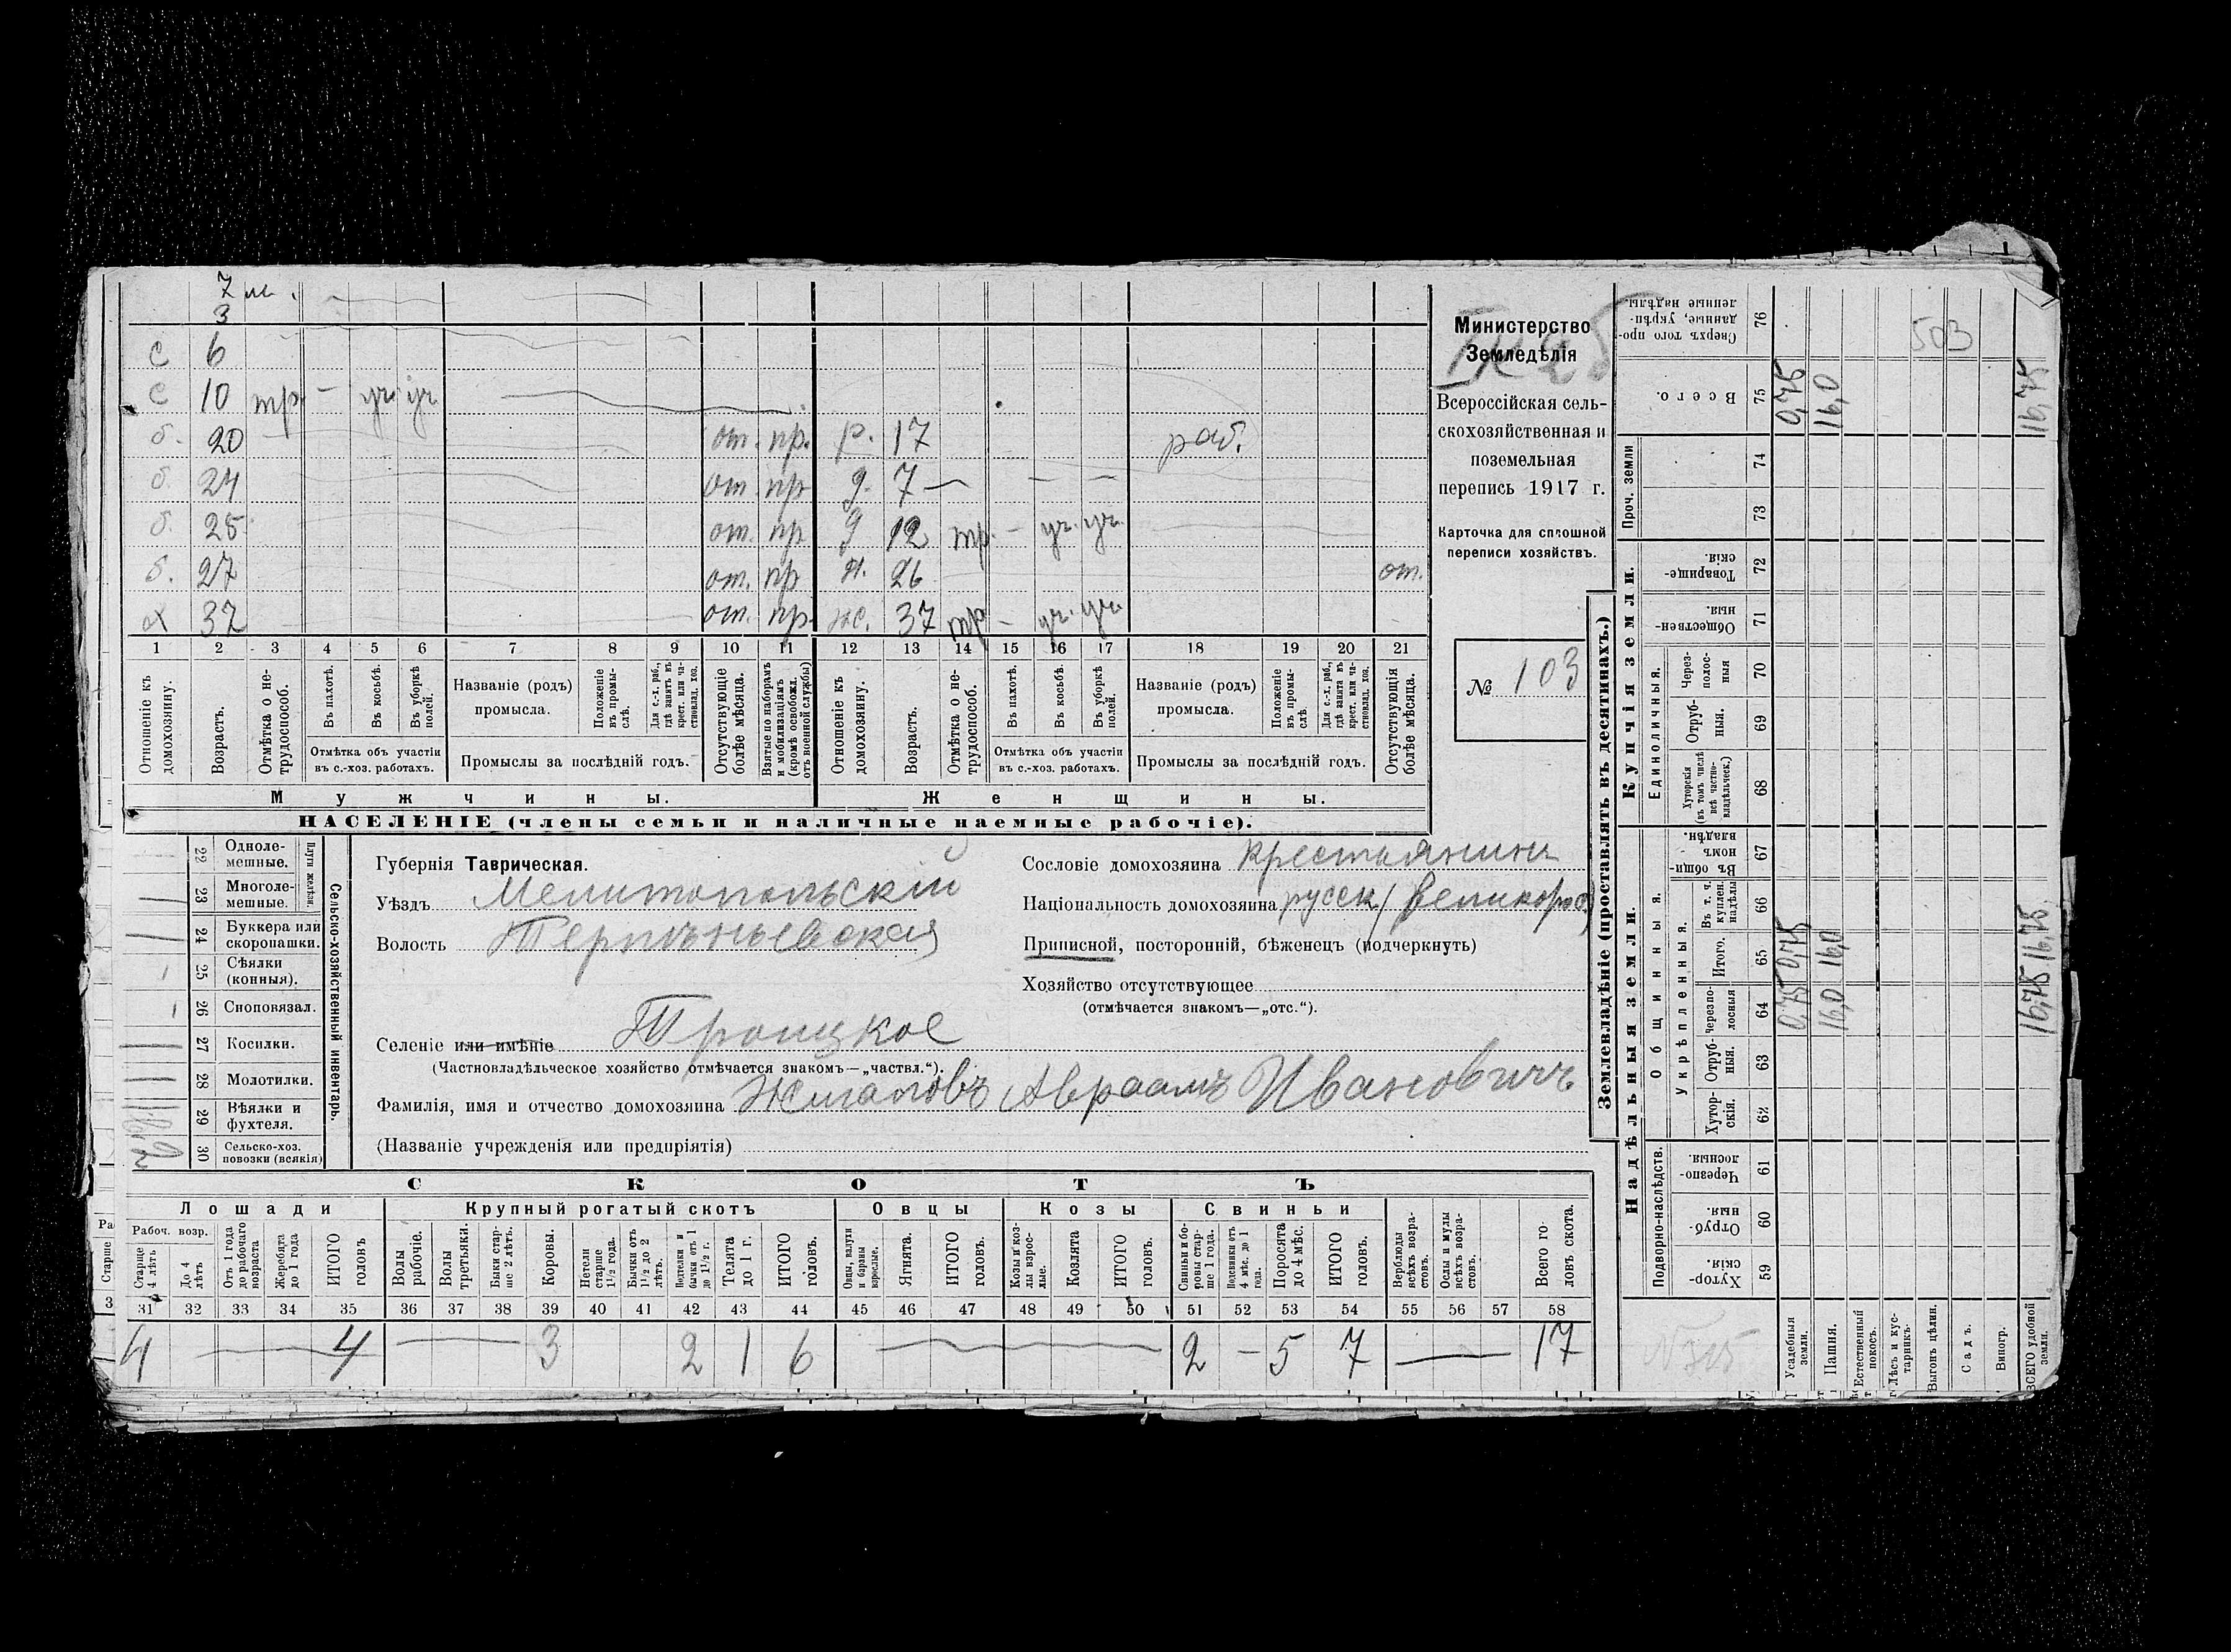 7 м.
3
с 6
с 10 тр. – уч уч
б. 20 от. пр. р. 17 раб.
б. 24 от. пр. д. 7 — — —
б. 25 от. пр. д 12 тр. – уч. уч.
б. 27 от. пр. 26 от.
х 37 от. пр. ж. 37 тр – уч. уч.
1 2 3 4 5 6 7 8 9 10 11 12 13 14 15 16 17 18 19 20 21
Отношеніе къ домохозяину.
Возрастъ.
Отмѣтка о не-трудоспособ.
Въ пахотѣ.
Въ косьбѣ.
Въ уборкѣ полей.
Отмѣтка объ участіи въ с.-хоз. работахъ.
Названіе (родъ) промысла.
Положеніе въ промы-слѣ.
Для с.-х. раб., гдѣ занятъ въ крест. или ча-стновлад. хоз.
Промыслы за послѣдній годъ.
Отсутствующіе болѣе мѣсяца.
Взятые по наборамъ и мобилизаціямъ (кромѣ освобожд. отъ военной службы)
Отношеніе къ домохозяину.
Возрастъ.
Отмѣтка о не-трудоспособ.
Въ пахотѣ.
Въ косьбѣ.
Въ уборкѣ полей.
Отмѣтка объ участіи въ с.-хоз. работахъ.
Названіе (родъ) промысла.
Положеніе въ промы-слѣ.
Для с.-х. раб., гдѣ занята въ крест. или ча-стновлад. хоз.
Промыслы за послѣдній годъ.
Отсутствующія болѣе мѣсяца.
Мужчины. Женщины.
НАСЕЛЕНІЕ (члены семьи и наличные наемные рабочіе).
Министерство
Земледѣлія
Всероссійская сель-
скохозяйственная и
поземельная
перепись 1917 г.
Карточка для сплошной
переписи хозяйствъ.
№ 103
Сельско-хозяйственный инвентарь.
Плуги желѣзн.
22 Одноле-мешные.
23 Многоле-мешные.
24 Буккера или скоропашки.
25 Сѣялки (конныя).
26 Сноповязал.
27 Косилки.
28 Молотилки.
29 Вѣялки и фухтеля.
30 Сельско-хоз. повозки (всякія)
Губернія Таврическая.
Уѣздъ Мелитопольскій
Волость Терпѣньевская
Селеніе или имѣніе Троицкое
(Частновладѣльческое хозяйство отмѣчается знакомъ—„частвл.“).
Фамилія, имя и отчество домохозяина Жигаловъ Авраамъ Ивановичъ
(Названіе учрежденія или предпріятія)
Сословіе домохозяина крестьянинъ
Національность домохозяина русск. (великорос.)
Приписной, посторонній, бѣженецъ (подчеркнуть)
Хозяйство отсутствующее
(отмѣчается знакомъ—„отс.“).
СКОТЪ
Лошади Крупный рогатый скотъ Овцы Козы Свиньи
Рабоч. возр.
Старше 4 лѣтъ
До 4 лѣтъ
Отъ 1 года до рабочаго возраста
Жеребята до 1 года
ИТОГО головъ
Волы рабочіе.
Волы третьяки.
Быки стар-ше 2 лѣтъ.
Коровы.
Нетели старше 1½ года.
Бычки отъ 1½ до 2 лѣтъ.
Подтелки и бычки отъ 1 до 1½ г.
Телята до 1 г.
ИТОГО головъ.
Овцы, валухи и бараны взрослые.
Ягнята.
ИТОГО головъ.
Козы и коз-лы взрос-лые.
Козлята
ИТОГО головъ.
Свиньи и бо-ровы стар-ше 1 года.
Подсвинки отъ 4 мѣс. до 1 года.
Поросята до 4 мѣс.
ИТОГО головъ.
Верблюды всѣхъ возра-стовъ.
Ослы и мулы всѣхъ возра-стовъ.
Всего го-ловъ скота.
31 32 33 34 35 36 37 38 39 40 41 42 43 44 45 46 47 48 49 50 51 52 53 54 55 56 57 58
4 — 4 — 3 2 1 6 — 2 – 5 7 — 17
Землевладѣніе (проставлять въ десятинахъ.)
Надѣльныя земли. Купчія земли.
Подворно-наслѣдств.
Общинныя.
Укрѣпленныя.
Единоличныя.
Проч. земли
59 Хутор-скія.
60 Отруб-ныя.
61 Черезпо-лосныя.
62 Хутор-скія.
63 Отруб-ныя.
64 Черезпо-лосныя
65 Итого.
66 Въ т. ч. куплен. надѣлы
67 Въ общин-номъ владѣн.
68 Хуторскія (въ томъ числѣ всѣ частно-владѣльческ.)
69 Отруб-ныя.
70 Через-полос-ныя
71 Обществен-ныя.
72 Товарище-скія.
73
74
75 Всего.
76 Сверхъ того про-данные, укрѣп-ленные надѣлы.
503
Усадебныя земли. 0,75 0,75 0,75
Пашня. 16,0 16,0 16,0
Естественный покосъ.
Лѣсъ и кус-тарникъ.
Выгонъ цѣлин.
Садъ.
Виногр.
ВСЕГО удобной земли. 16,75 16,75 16,75